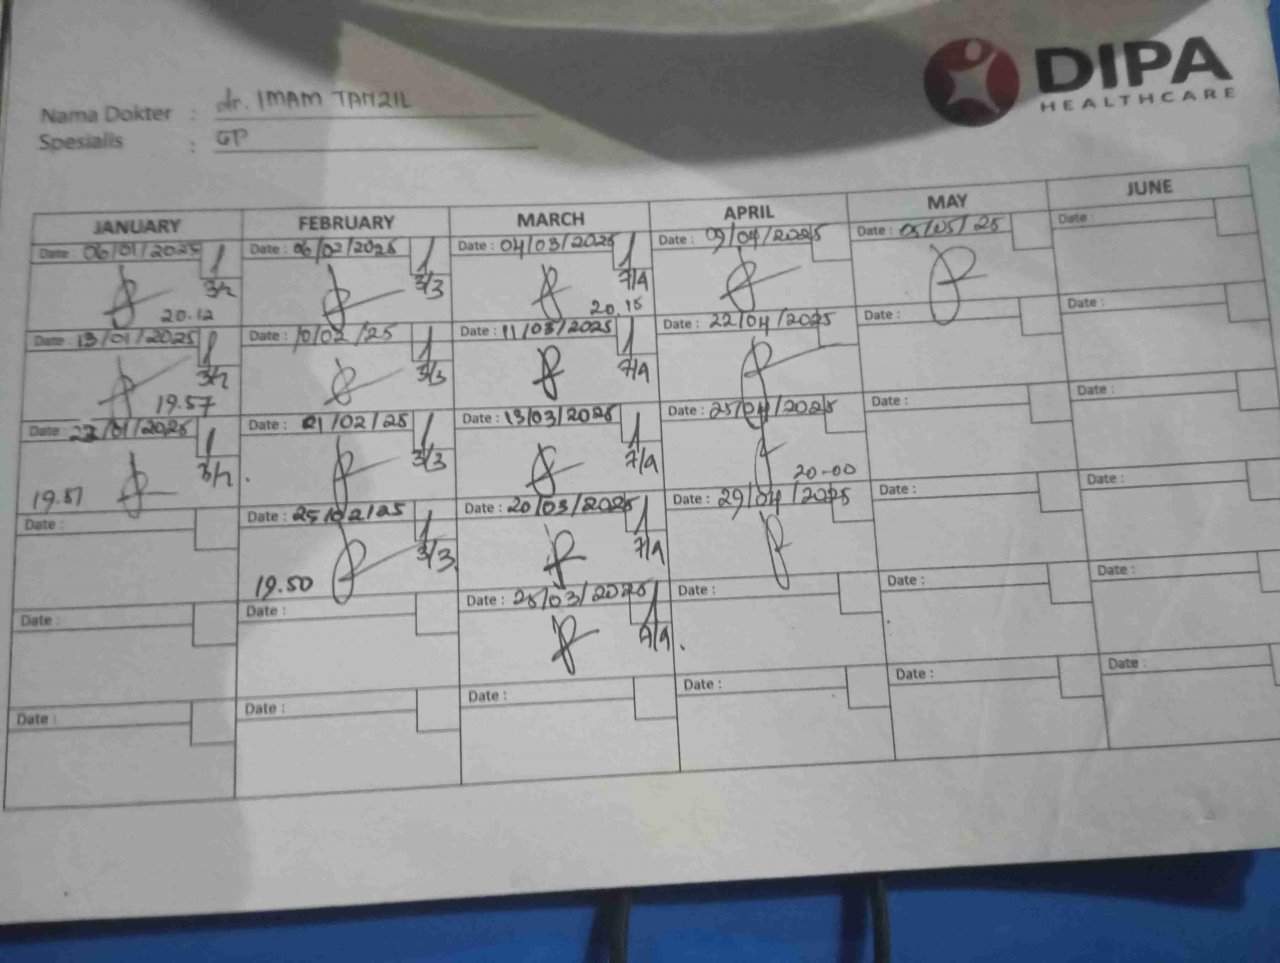 DIPA
HEALTHCARE
Nama Dokter : dr. IMAM TANZIL
Spesialis : GP
JANUARY FEBRUARY MARCH APRIL MAY JUNE
Date : 06/01/2025 Date : 06/02/2025 Date : 04/03/2025 Date : 09/04/2025 Date : 05/05/25 Date :
3/2 3/3 7/4
20.12 20.15
Date : 13/01/2025 Date : 10/02/25 Date : 11/03/2025 Date : 22/04/2025 Date : Date :
3/2 3/3 7/4
19.57
Date : /01/2025 Date : 21/02/25 Date : 13/03/2025 Date : 25/04/2025 Date : Date :
3/2 3/3 7/4
19.57 20-00
Date : Date : 25/02/25 Date : 20/03/2025 Date : 29/04/2025 Date : Date :
3/3 7/4
19.50
Date : Date : Date : 25/03/2025 Date : Date : Date :
7/4
Date : Date : Date : Date : Date : Date :